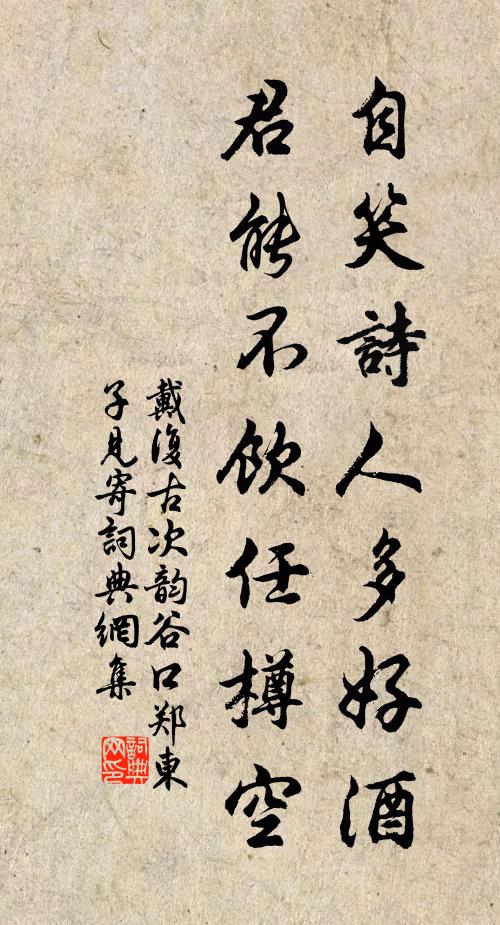 自笑詩人多好酒
君能不飲任樽空
戴復古次韵谷口郑東
子見寄詞典網集
詞典
网印